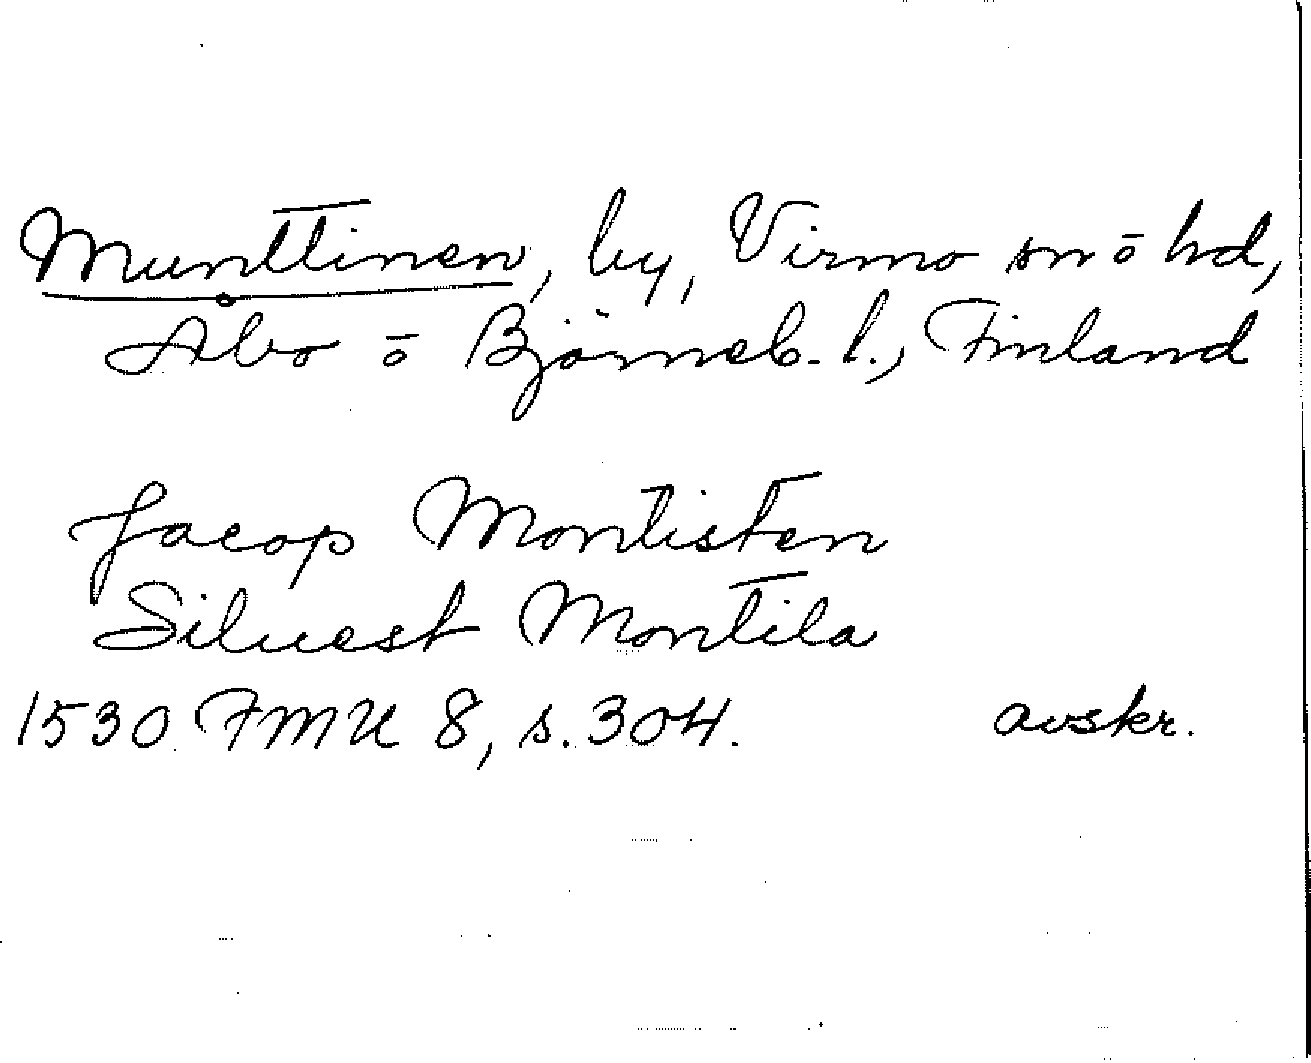 Munttinen, by, Virmo sn o hd,
Åbo o Björneb. l., Finland
Jacop Montisten
Siluest Montila
1530 FMU 8, s. 304. avskr.